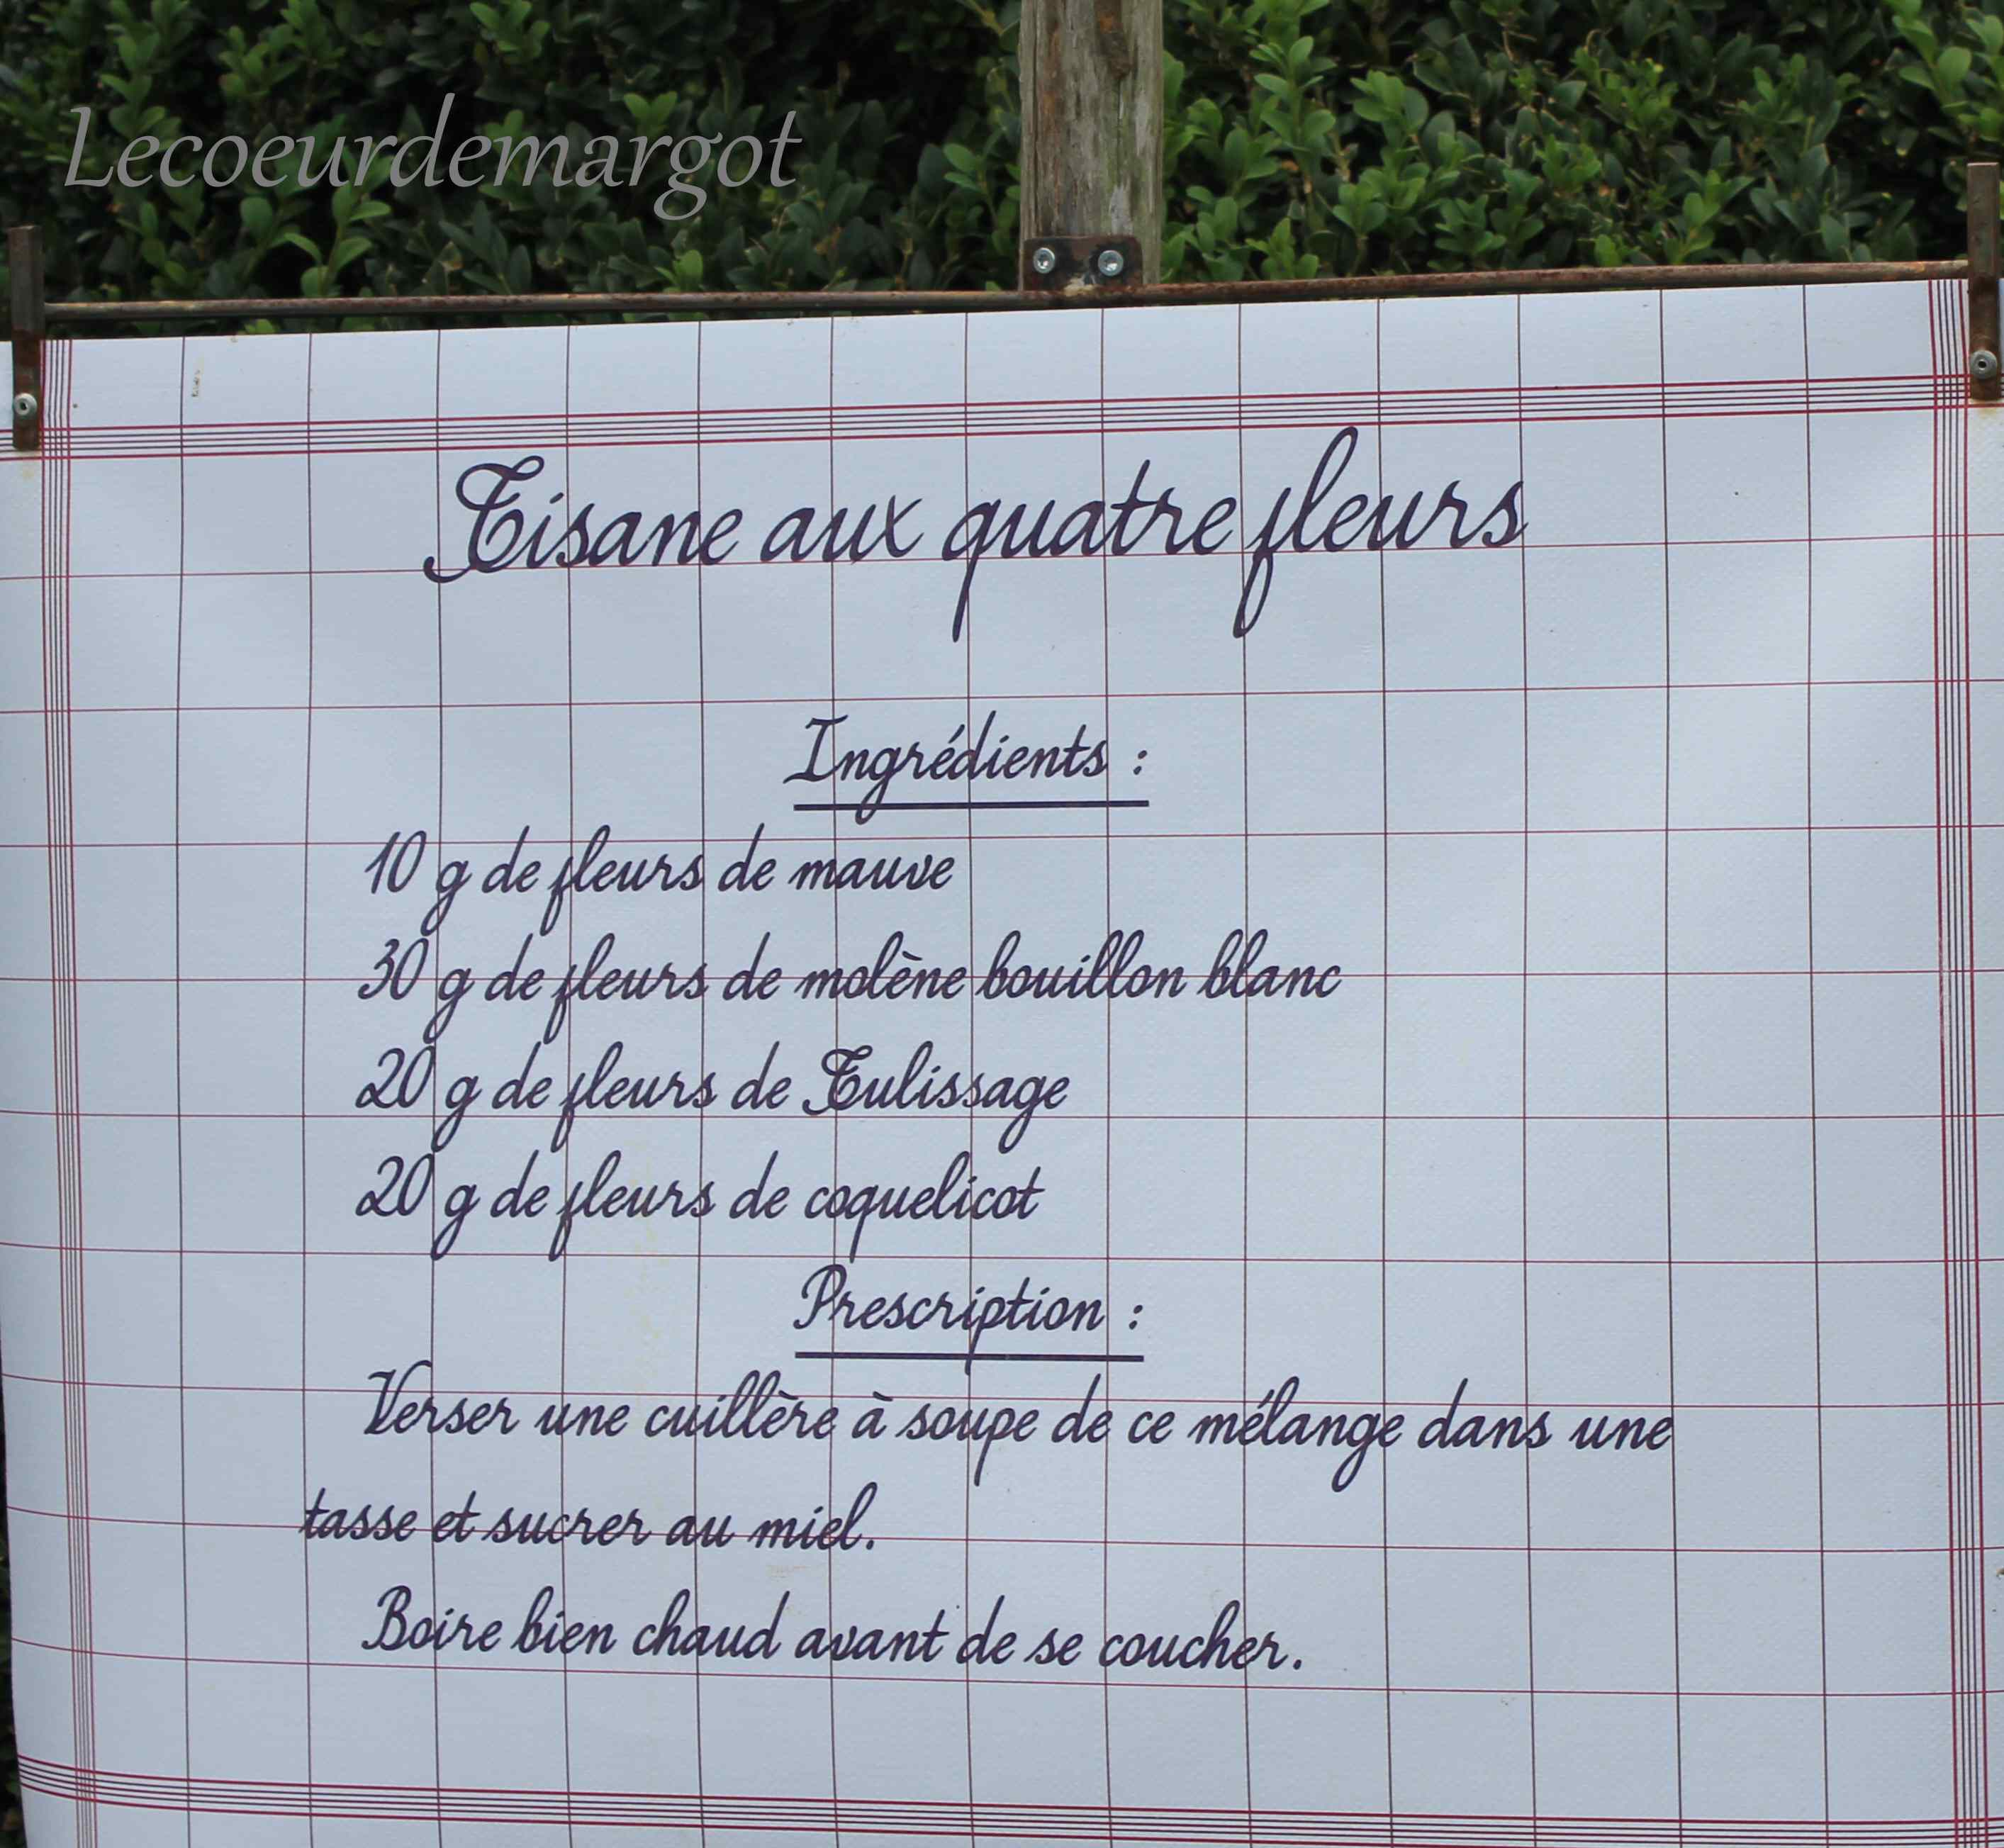 Lecoeurdemargot
Tisane aux quatre fleurs
Ingrédients :
10 g de fleurs de mauve
30 g de fleurs de molène bouillon blanc
20 g de fleurs de Tulissage
20 g de fleurs de coquelicot
Prescription :
Verser une cuillère à soupe de ce mélange dans une
tasse et sucrer au miel.
Boire bien chaud avant de se coucher.